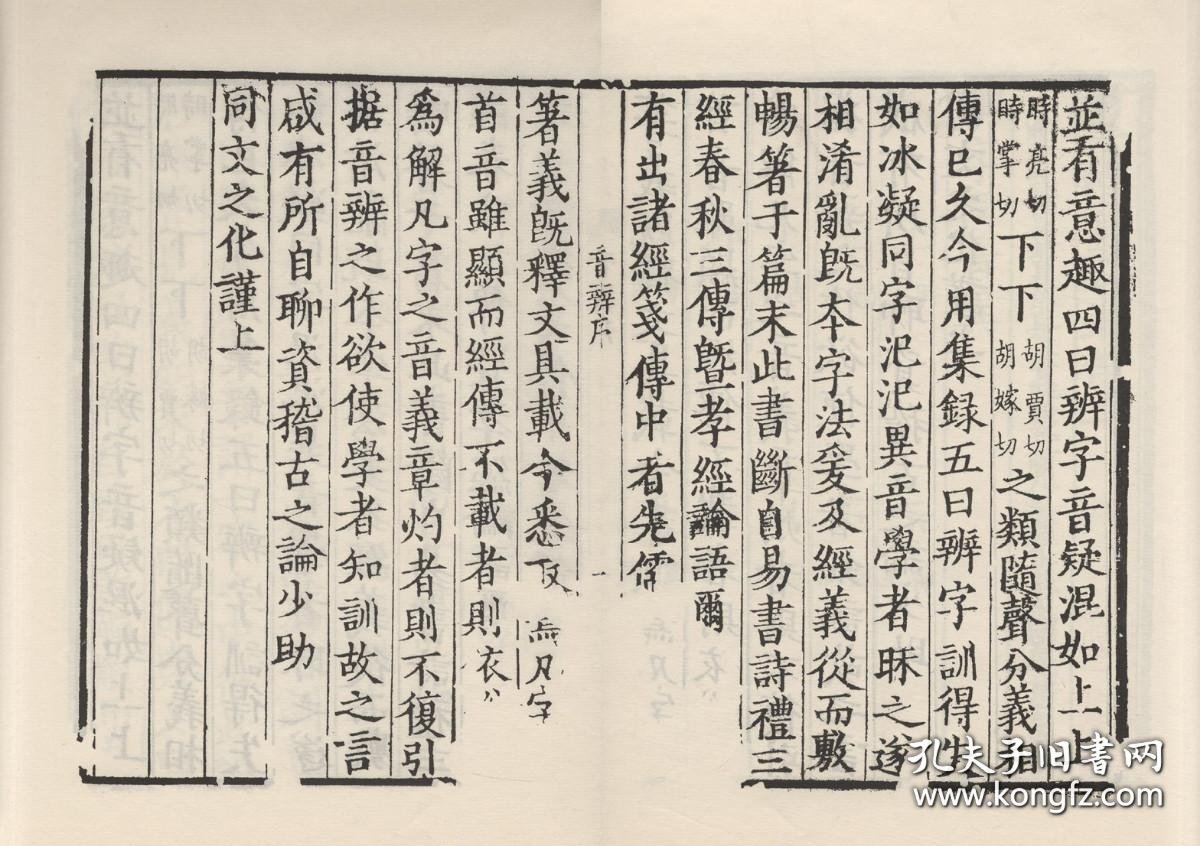 並有意趣四曰辨字音疑混如上上
時亮切
時掌切
下下
胡賈切
胡嫁切
之類隨聲分義相
傳已久今用集録五曰辨字訓得失
如冰凝同字汜汜異音學者昧之遂
相淆亂旣本字法爰及經義從而敷
暢著于篇末此書斷自易書詩禮三
經春秋三傳曁孝經論語爾
有出諸經箋傳中者先儒
音辨序
一
著義旣釋文具載今悉
凡字
首音雖顯而經傳不載者則
爲解凡字之音義章灼者則不復引
据音辨之作欲使學者知訓故之言
咸有所自聊資稽古之論少助
同文之化謹上
孔夫子旧书网
www.kongfz.com